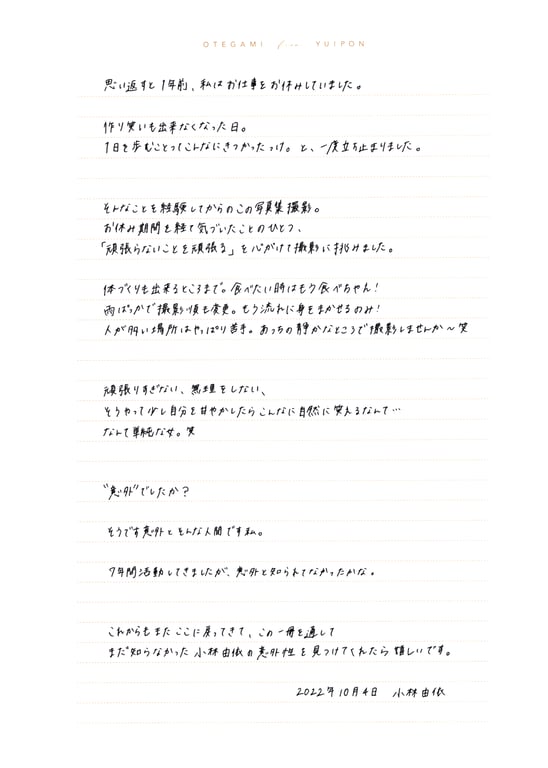 OTEGAMI from YUIPON
思い返すと1年前、私はお仕事をお休みしていました。
作り笑いも出来なくなった日。
1日を歩むことってこんなにきつかったっけ。と、一度立ち止まりました。
そんなことを経験してからのこの写真集撮影。
お休み期間を経て気づいたことのひとつ、
「頑張らないことを頑張る」を心がけて撮影に挑みました。
体づくりも出来るところまで。食べたい時はもう食べちゃん!
雨ばっかで撮影順も変更。もう流れに身をまかせるのみ!
人が多い場所はやっぱり苦手。あっちの静かなところで撮影しませんか〜笑
頑張りすぎない、無理をしない、
そうやって少し自分を甘やかしたらこんなに自然に笑えるなんて…
なんて単純な女。笑
"意外"でしたか?
そうです意外とそんな人間です私。
7年間活動してきましたが、意外と知られてなかったかな。
これからもまたここに戻ってきて、この一冊を通して
まだ知らなかった小林由依の意外性を見つけてくれたら嬉しいです。
2022年10月4日 小林由依